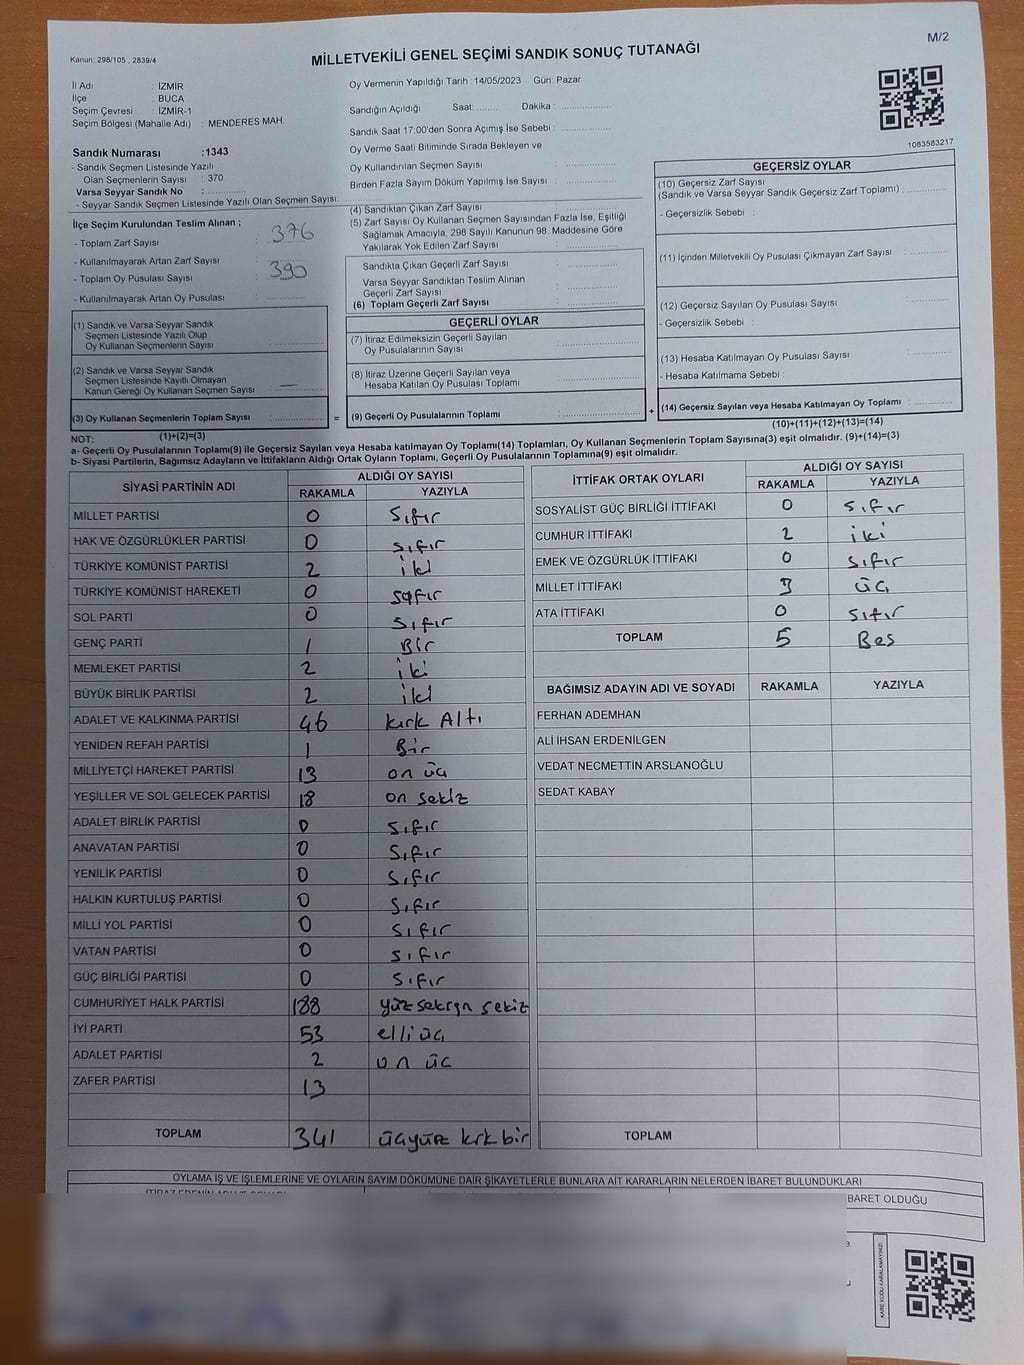 M/2
Kanun: 298/105 , 2839/4
MİLLETVEKİLİ GENEL SEÇİMİ SANDIK SONUÇ TUTANAĞI
İl Adı : İZMİR
İlçe : BUCA
Seçim Çevresi : İZMİR-1
Seçim Bölgesi (Mahalle Adı) : MENDERES MAH.
Sandık Numarası :1343
- Sandık Seçmen Listesinde Yazılı
Olan Seçmenlerin Sayısı : 370
Varsa Seyyar Sandık No : ............
- Seyyar Sandık Seçmen Listesinde Yazılı Olan Seçmen Sayısı: ............
Oy Vermenin Yapıldığı Tarih :14/05/2023 Gün: Pazar
Sandığın Açıldığı Saat: ........ Dakika : ....................
Sandık Saat 17:00'den Sonra Açımış İse Sebebi : ....................
Oy Verme Saati Bitiminde Sırada Bekleyen ve
Oy Kullandırılan Seçmen Sayısı : ....................
Birden Fazla Sayım Döküm Yapılmış İse Sayısı : ....................
1083583217
İlçe Seçim Kurulundan Teslim Alınan ;
- Toplam Zarf Sayısı : 376
- Kullanılmayarak Artan Zarf Sayısı :
- Toplam Oy Pusulası Sayısı : 390
- Kullanılmayarak Artan Oy Pusulası :
(1) Sandık ve Varsa Seyyar Sandık
Seçmen Listesinde Yazılı Olup
Oy Kullanan Seçmenlerin Sayısı :
(2) Sandık ve Varsa Seyyar Sandık
Seçmen Listesinde Kayıtlı Olmayan
Kanun Gereği Oy Kullanan Seçmen Sayısı : —
(3) Oy Kullanan Seçmenlerin Toplam Sayısı :
(1)+(2)=(3)
(4) Sandıktan Çıkan Zarf Sayısı :
(5) Zarf Sayısı Oy Kullanan Seçmen Sayısından Fazla İse, Eşitliği
Sağlamak Amacıyla; 298 Sayılı Kanunun 98. Maddesine Göre
Yakılarak Yok Edilen Zarf Sayısı :
Sandıkta Çıkan Geçerli Zarf Sayısı :
Varsa Seyyar Sandıktan Teslim Alınan
Geçerli Zarf Sayısı :
(6) Toplam Geçerli Zarf Sayısı :
GEÇERLİ OYLAR
(7) İtiraz Edilmeksizin Geçerli Sayılan
Oy Pusulalarının Sayısı :
(8) İtiraz Üzerine Geçerli Sayılan veya
Hesaba Katılan Oy Pusulası Toplamı :
= (9) Geçerli Oy Pusulalarının Toplamı : +
GEÇERSİZ OYLAR
(10) Geçersiz Zarf Sayısı
(Sandık ve Varsa Seyyar Sandık Geçersiz Zarf Toplamı) :
- Geçersizlik Sebebi :
(11) İçinden Milletvekili Oy Pusulası Çıkmayan Zarf Sayısı :
(12) Geçersiz Sayılan Oy Pusulası Sayısı :
- Geçersizlik Sebebi :
(13) Hesaba Katılmayan Oy Pusulası Sayısı :
- Hesaba Katılmama Sebebi :
(14) Geçersiz Sayılan veya Hesaba Katılmayan Oy Toplamı :
(10)+(11)+(12)+(13)=(14)
NOT:
a- Geçerli Oy Pusulalarının Toplamı(9) ile Geçersiz Sayılan veya Hesaba katılmayan Oy Toplamı(14) Toplamları, Oy Kullanan Seçmenlerin Toplam Sayısına(3) eşit olmalıdır. (9)+(14)=(3)
b- Siyasi Partilerin, Bağımsız Adayların ve İttifakların Aldığı Ortak Oyların Toplamı, Geçerli Oy Pusulalarının Toplamına(9) eşit olmalıdır.
SİYASİ PARTİNİN ADI ALDIĞI OY SAYISI
RAKAMLA YAZIYLA
MİLLET PARTİSİ 0 Sıfır
HAK VE ÖZGÜRLÜKLER PARTİSİ 0 sıfır
TÜRKİYE KOMÜNİST PARTİSİ 2 iki
TÜRKİYE KOMÜNİST HAREKETİ 0 sıfır
SOL PARTİ 0 sıfır
GENÇ PARTİ 1 Bir
MEMLEKET PARTİSİ 2 iki
BÜYÜK BİRLİK PARTİSİ 2 iki
ADALET VE KALKINMA PARTİSİ 46 kırk Altı
YENİDEN REFAH PARTİSİ 1 Bir
MİLLİYETÇİ HAREKET PARTİSİ 13 on üç
YEŞİLLER VE SOL GELECEK PARTİSİ 18 on sekiz
ADALET BİRLİK PARTİSİ 0 sıfır
ANAVATAN PARTİSİ 0 sıfır
YENİLİK PARTİSİ 0 sıfır
HALKIN KURTULUŞ PARTİSİ 0 sıfır
MİLLİ YOL PARTİSİ 0 sıfır
VATAN PARTİSİ 0 sıfır
GÜÇ BİRLİĞİ PARTİSİ 0 sıfır
CUMHURİYET HALK PARTİSİ 188 yüz seksen sekiz
İYİ PARTİ 53 elli üç
ADALET PARTİSİ 2 on üç
ZAFER PARTİSİ 13
TOPLAM 341 üçyüz kırk bir
İTTİFAK ORTAK OYLARI ALDIĞI OY SAYISI
RAKAMLA YAZIYLA
SOSYALİST GÜÇ BİRLİĞİ İTTİFAKI 0 sıfır
CUMHUR İTTİFAKI 2 iki
EMEK VE ÖZGÜRLÜK İTTİFAKI 0 sıfır
MİLLET İTTİFAKI 3 üç
ATA İTTİFAKI 0 sıfır
TOPLAM 5 Beş
BAĞIMSIZ ADAYIN ADI VE SOYADI RAKAMLA YAZIYLA
FERHAN ADEMHAN
ALİ İHSAN ERDENİLGEN
VEDAT NECMETTİN ARSLANOĞLU
SEDAT KABAY
TOPLAM
OYLAMA İŞ VE İŞLEMLERİNE VE OYLARIN SAYIM DÖKÜMÜNE DAİR ŞİKAYETLERLE BUNLARA AİT KARARLARIN NELERDEN İBARET BULUNDUKLARI
BARET OLDUĞU
KARE KODU KARALAMAYINIZ!